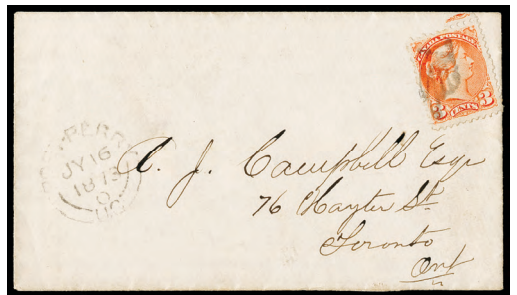 CANADA POSTAGE
3 CENTS 3
PORT PERRY
JY 16
1873
ONT
A. J. Campbell Esqr
76 Hayter St.
Toronto
Ont